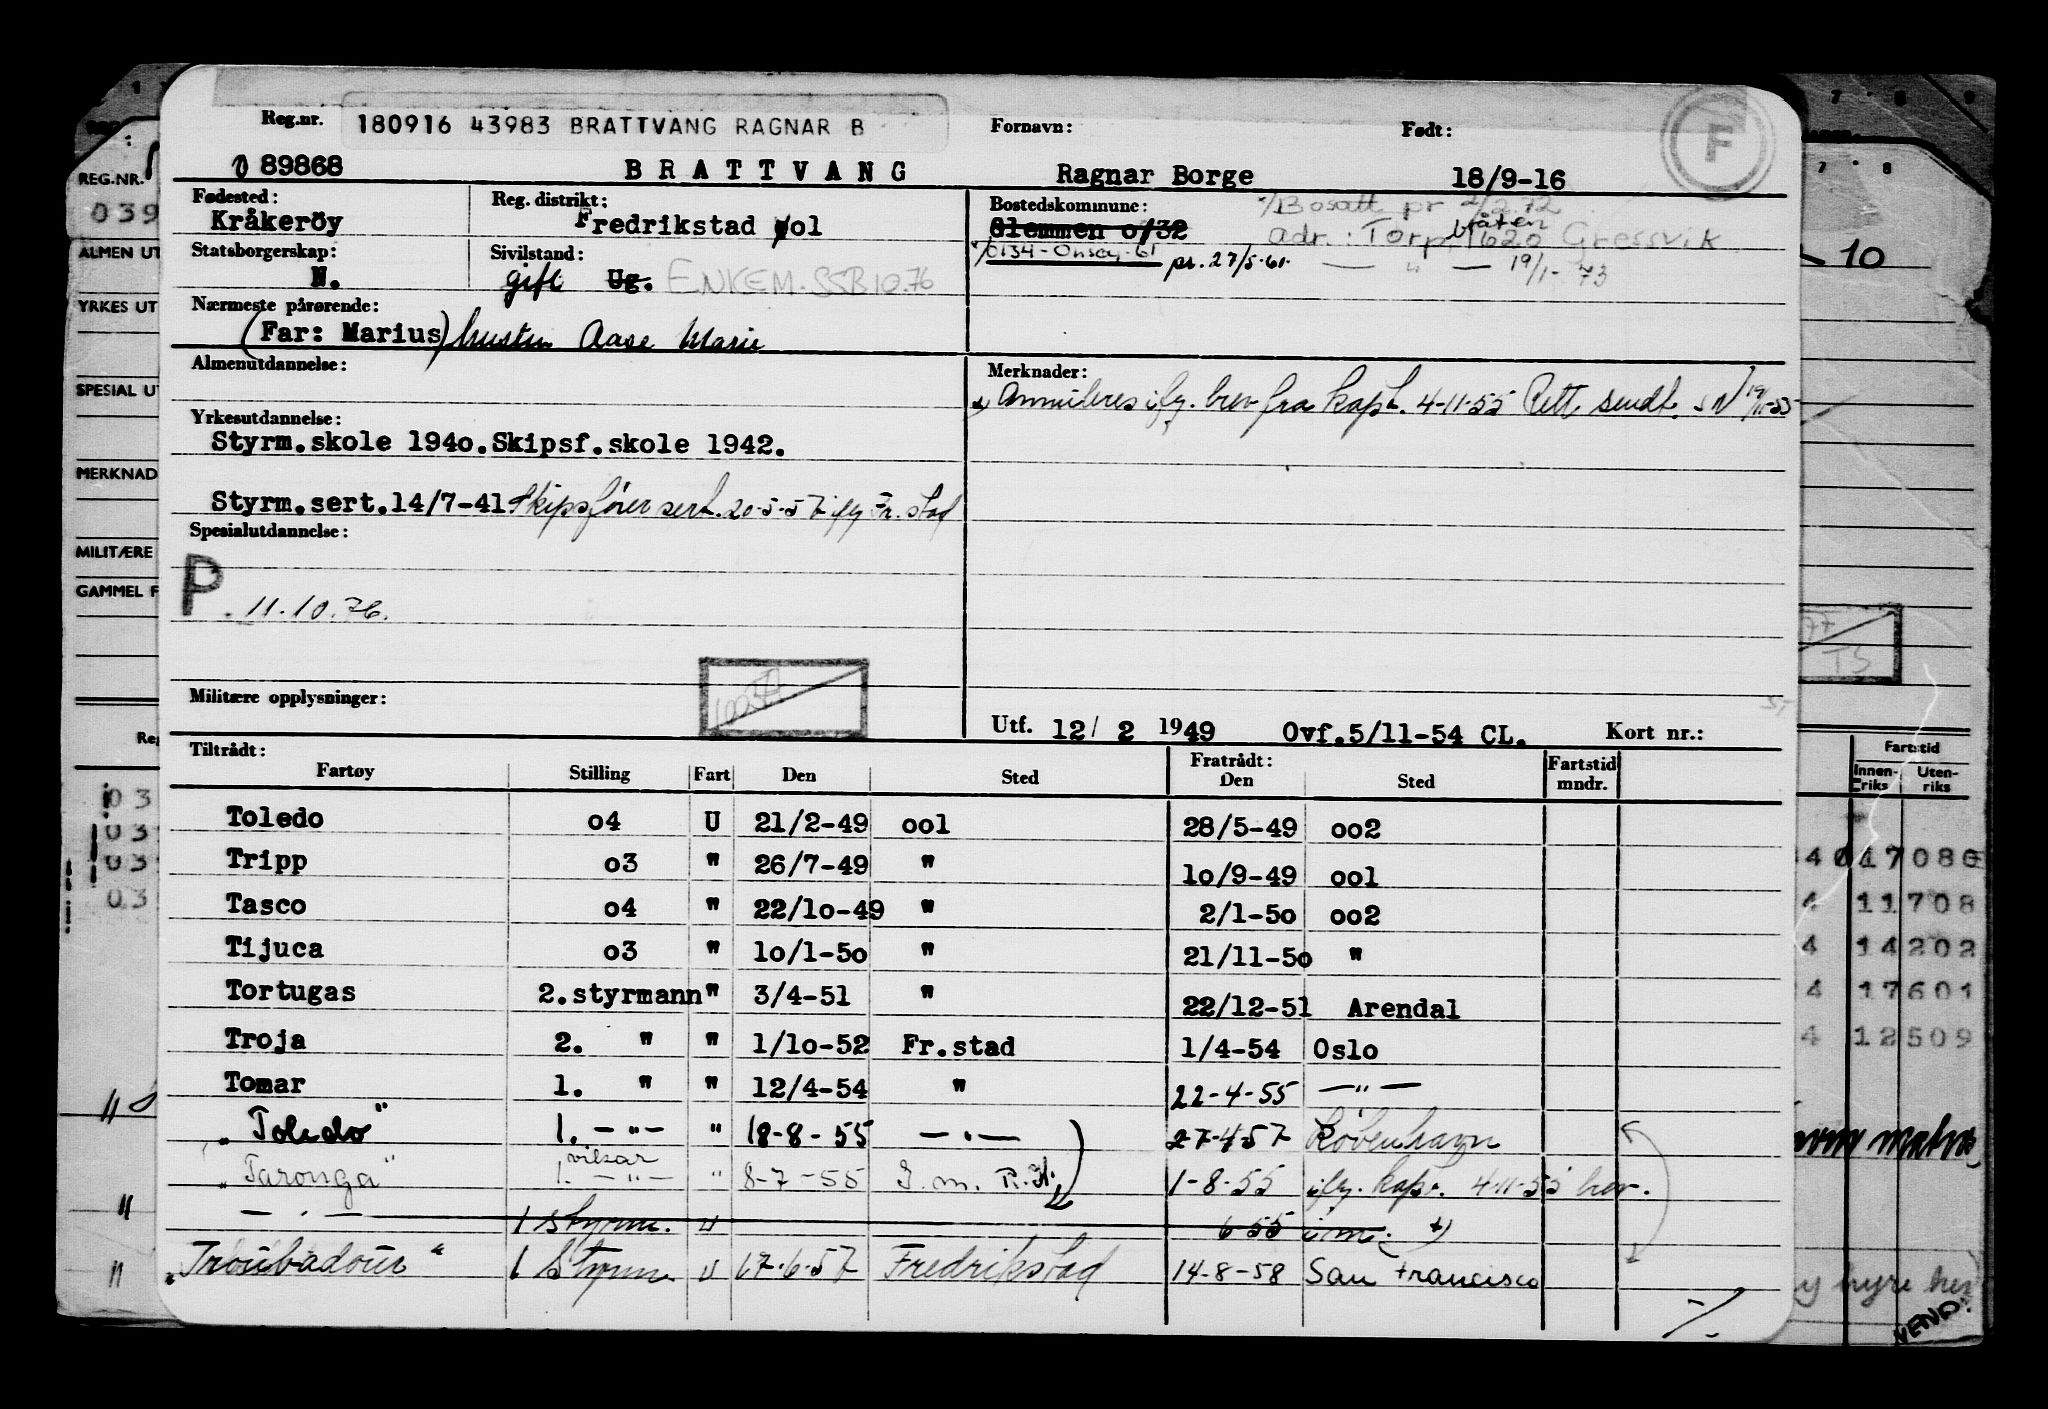 Reg.nr. 180916 43983 BRATTVANG RAGNAR B Fornavn: Født: F
89868 BRATTVANG Ragnar Borge 18/9-16
Fødested: Reg. distrikt: Bostedskommune: Bosatt pr 2/2.72
Kråkeröy Fredrikstad ool Glemmen o/32 adr.: Torp bråten 1620 Gressvik
Statsborgerskap: Sivilstand: 0134-Onsøy-61 pr. 27/5-61. — " — 19/1-73
N. gift Ug. ENKEM. SSB 10.76
Nærmeste pårørende:
(Far: Marius) hustru Aase Marie
Almenutdannelse: Merknader:
x) Annuleres ifg. brev fra kapt. 4-11-55 Rett. sendt.
Yrkesutdannelse:
Styrm.skole 194o.Skipsf.skole 1942.
Styrm.sert.14/7-41 Skipsfører sert. 20-5-57 ifg Fr.stad
Spesialutdannelse:
P. 11.10.76.
Militære opplysninger:
Utf. 12/ 2 1949 Ovf.5/11-54 CL. Kort nr.:
Tiltrådt: Fratrådt:
Fartøy Stilling Fart Den Sted Den Sted Fartstid mndr.
Toledo o4 U 21/2-49 ool 28/5-49 oo2
Tripp o3 " 26/7-49 " 1o/9-49 ool
Tasco o4 " 22/1o-49 " 2/1-5o oo2
Tijuca o3 " 1o/1-5o " 21/11-5o "
Tortugas 2.styrmann " 3/4-51 " 22/12-51 Arendal
Troja 2. " " 1/1o-52 Fr.stad 1/4-54 Oslo
Tomar 1. " " 12/4-54 " 22-4-55 — " —
"Toledo" 1. — " — " 18-8-55 — " — 27-4-57 København
"Taronga" 1. vikar — " — " 8-7-55 1-8-55 ifg. kapt. 4-11-55 brev.
— " — 1 styrm. u 6-55 x)
"Troubadour" 1 Styrm. u 17-6-57 Fredrikstad 14-8-58 San Francisco
REG.NR.
039
ALMEN UT
YRKES UT
SPESIAL UT
MERKNAD
MILITÆRE
GAMMEL F
Reg
03
03
03
03
7 8 9
7 8
10
TS
Fartstid
Innenriks Utenriks
11708
4 14202
4 17601
4 12509
hyre
VEND: